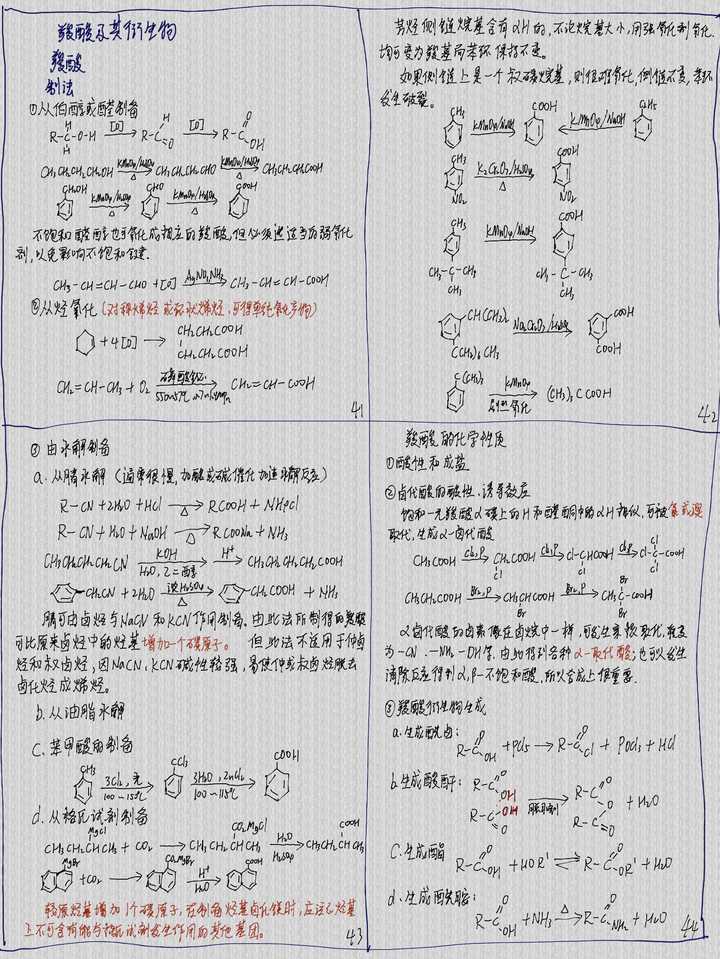 羧酸及其衍生物
羧酸
制法
①从伯醇或醛制备
R-C-O-H [O] R-C [O] R-C
H H O H O OH
CH3CH2CH2CH2OH KMnO4/H2SO4 △ CH3CH2CH2CHO KMnO4/H2SO4 △ CH3CH2CH2COOH
CH2OH KMnO4/H2SO4 △ CHO KMnO4/H2SO4 △ COOH
不饱和醛醇也可氧化成相应的羧酸,但必须选适当的弱氧化
剂,以免影响不饱和键.
CH3-CH=CH-CHO +[O] AgNO3,NH3 CH3-CH=CH-COOH
②从烃氧化(对称烯烃或环状烯烃,可得单纯氧化产物)
+4[O] → CH2CH2COOH
CH2CH2COOH
CH2=CH-CH3 + O2 CH2=CH-COOH
41
芳烃侧链烷基含有αH的,不论烷基大小,用强氧化剂氧化
均可变为羧基而苯环保持不变。
如果侧链上是一个叔碳烷基,则很难氧化,侧链不变,苯环
发生破裂。
CH3 KMnO4/NaOH COOH KMnO4/NaOH C2H5
CH3 K2Cr2O7/H2SO4 △ COOH
NO2 NO2
CH3 KMnO4/NaOH COOH
CH3-C-CH3 CH3-C-CH3
CH3 CH3
CH(CH3)2 Na2Cr2O7/H2SO4 COOH
COOH
C(CH3)3 KMnO4 剧烈氧化 (CH3)3CCOOH
42
③由水解制备
a.从腈水解(通常很慢,加酸或碱催化加速水解反应)
R-CN +2H2O + HCl △ RCOOH + NH4Cl
R-CN + H2O + NaOH △ RCOONa + NH3
CH3CH2CH2CH2CN KOH H2O,乙二醇 H+ CH3CH2CH2CH2COOH
CH2CN + 2H2O 浓H2SO4 △ CH2COOH + NH3
腈可由卤烃与NaCN和KCN作用制备。由此法所制得的羧酸
可比原来卤烃中的烃基增加一个碳原子。但此法不适用于仲卤
烃和叔卤烃,因NaCN,KCN碱性较强,易使仲或叔卤烃脱去
卤化烃成烯烃。
b.从油脂水解
C.苯甲酸的制备
CH3 3Cl2,光 100~150℃ CCl3 3H2O,ZnCl2 100~115℃ COOH
d.从格氏试剂制备
MgCl CO2MgCl COOH
CH3CH2CHCH3 + CO2 → CH3CH2CHCH3 H2O H2SO4 CH3CH2CHCH3
MgBr +CO2 → CO2MgBr H+ H2O COOH
较原烃基增加1个碳原子,在制备烃基卤化镁时,应注意烃基
上不可含有能与格氏试剂发生作用的其他基团。
43
羧酸的化学性质
①酸性和成盐
②卤代酸的酸性、诱导效应
饱和一元羧酸α碳上的H和醛酮中的αH相似,可被氯或溴
取代,生成α-卤代酸
CH3COOH Cl2,P CH2COOH Cl2,P Cl-CHCOOH Cl2,P Cl-C-COOH
Cl Cl Cl Cl
CH3CH2COOH Br2,P CH3CHCOOH Br2,P CH3C-COOH
Br Br Br
α卤代酸的卤素像在卤烷中一样,可发生亲核取代,转变
为-CN、-NH2、-OH等,由此得到各种α-取代酸;也可以发生
消除反应得到α,β-不饱和酸,所以合成上很重要.
③羧酸衍生物生成
a.生成酰卤:
R-C + PCl5 → R-C + POCl3 + HCl
O OH O Cl
b.生成酸酐: R-C R-C
O OH OH O 脱水剂 O O O + H2O
R-C R-C
C.生成酯 R-C + HOR' ⇌ R-C + H2O
O OH O OR'
d.生成酰胺:
R-C + NH3 △ R-C + H2O
O OH O NH2
44